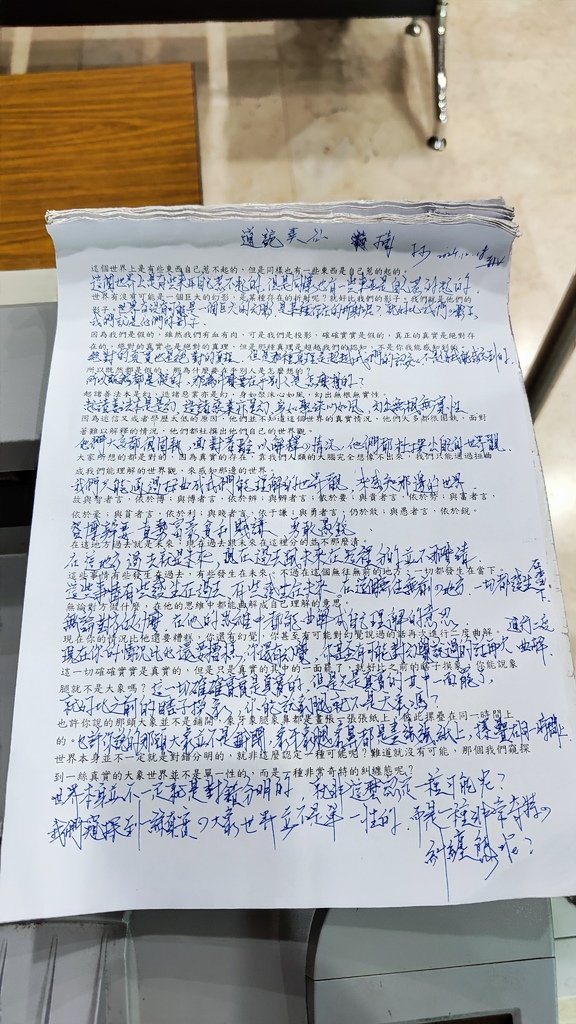 道詭異仙
2024.10.
這個世界上是有些東西自己惹不起的，但是同樣也有一些東西是自己惹的起的。
這個世界上是有些東西自己惹不起的，但是同樣也有一些東西是自己惹的起的。
世界有沒有可能是一個巨大的幻影，是某種存在的折射呢？就好比我們的影子，我們就是他們的
影子。世界有沒有可能是一個巨大的幻影 是某種存在的折射呢？就好比我們的影子
我們就是他們的影子
因為我們是假的，雖然我們有血有肉，可是我們是投影，確確實實是假的，真正的真實是絕對存
在的，絕對的真實也是絕對的真理，但是那種真理是超越我們的認知，不是你我能感知到的。
絕對的真實也是絕對的真理，但是那種真理是超越我們的認知 不是你我能感知到的.
所以既然都是假的，那為什麼要在乎別人是怎麼想的？
所以既然都是假的，那為什麼要在乎別人是怎麼想的？
起諸善法本是幻，造諸惡業亦是幻，身如聚沫心如風，幻出無根無實性。
起諸善法本是幻 造諸惡業亦是幻 身如聚沫心如風 幻出無根無實性
因為迷信又或者學歷太低的原因，他們並不知道這個世界的真實情況，他們大多都很固執，面對
著難以解釋的情況，他們都杜撰出他們自己的世界觀。
他們大多都很固執 面對著難以解釋的情況 他們都杜撰出他們自己的世界觀
大家所想的都是對的，因為真實的存在，靠我們人類的大腦完全想像不出來，我們只能通過扭曲
成我們能理解的世界觀，來感知那邊的世界。
我們只能通過扭曲成我們能理解的世界觀 來感知那邊的世界
故與智者言，依於博；與博者言，依於辨；與辨者言，依於要；與貴者言，依於勢；與富者言，
依於豪；與貧者言，依於利；與賤者言，依于謙；與勇者言，仍於敢；與愚者言，依於銳。
在這地方過去就是未來，現在過去跟未來在這裡分的並不那麼清。
在這地方過去就是未來 現在過去跟未來在這裡分的並不那麼清
這些事情有些發生在過去，有些發生在未來，不過在這個無往無前的地方，一切都發生在當下。
這些事情有些發生在過去 有些發生在未來。在這個無往無前的地方 一切都發生在當下
無論對方說什麼，在他的思維中都能曲解成自己理解的意思。
無論對方說什麼 在他的思維中都能曲解成自己理解的意思
現在你的情況比他還要糟糕，你還有幻覺，你甚至有可能對幻覺說過的話再次進行二度曲解。
現在你的情況比他還要糟糕 你還有幻覺 你甚至有可能對幻覺說過的話再次進行二度曲解
這一切確確實實是真實的，但是只是真實的其中的一面罷了，就好比之前的瞎子摸象，你能說象
腿就不是大象嗎？這一切確確實實是真實的 但是只是真實的其中一面罷了
就好比之前的瞎子摸象 你能說象腿就不是大象嗎？
也許你說的那頭大象並不是鋪開，象牙象腿象鼻都是畫張一張張紙上，彼此摞疊在同一時間上
的。也許你說的那頭大象並不是鋪開 象牙象腿象鼻都是畫張一張張紙上，摞疊在同一時間上
世界本身並不一定就是對錯分明的，就非這麼認定一種可能呢？難道就沒有可能，那個我們窺探
到一絲真實的大象世界並不是單一性的，而是一種非常奇特的糾纏態呢？
世界本身並不一定就是對錯分明的 就非這麼認定一種可能呢？
我們窺探到一絲真實的大象世界並不是單一性的，而是一種非常奇特的
糾纏態呢？